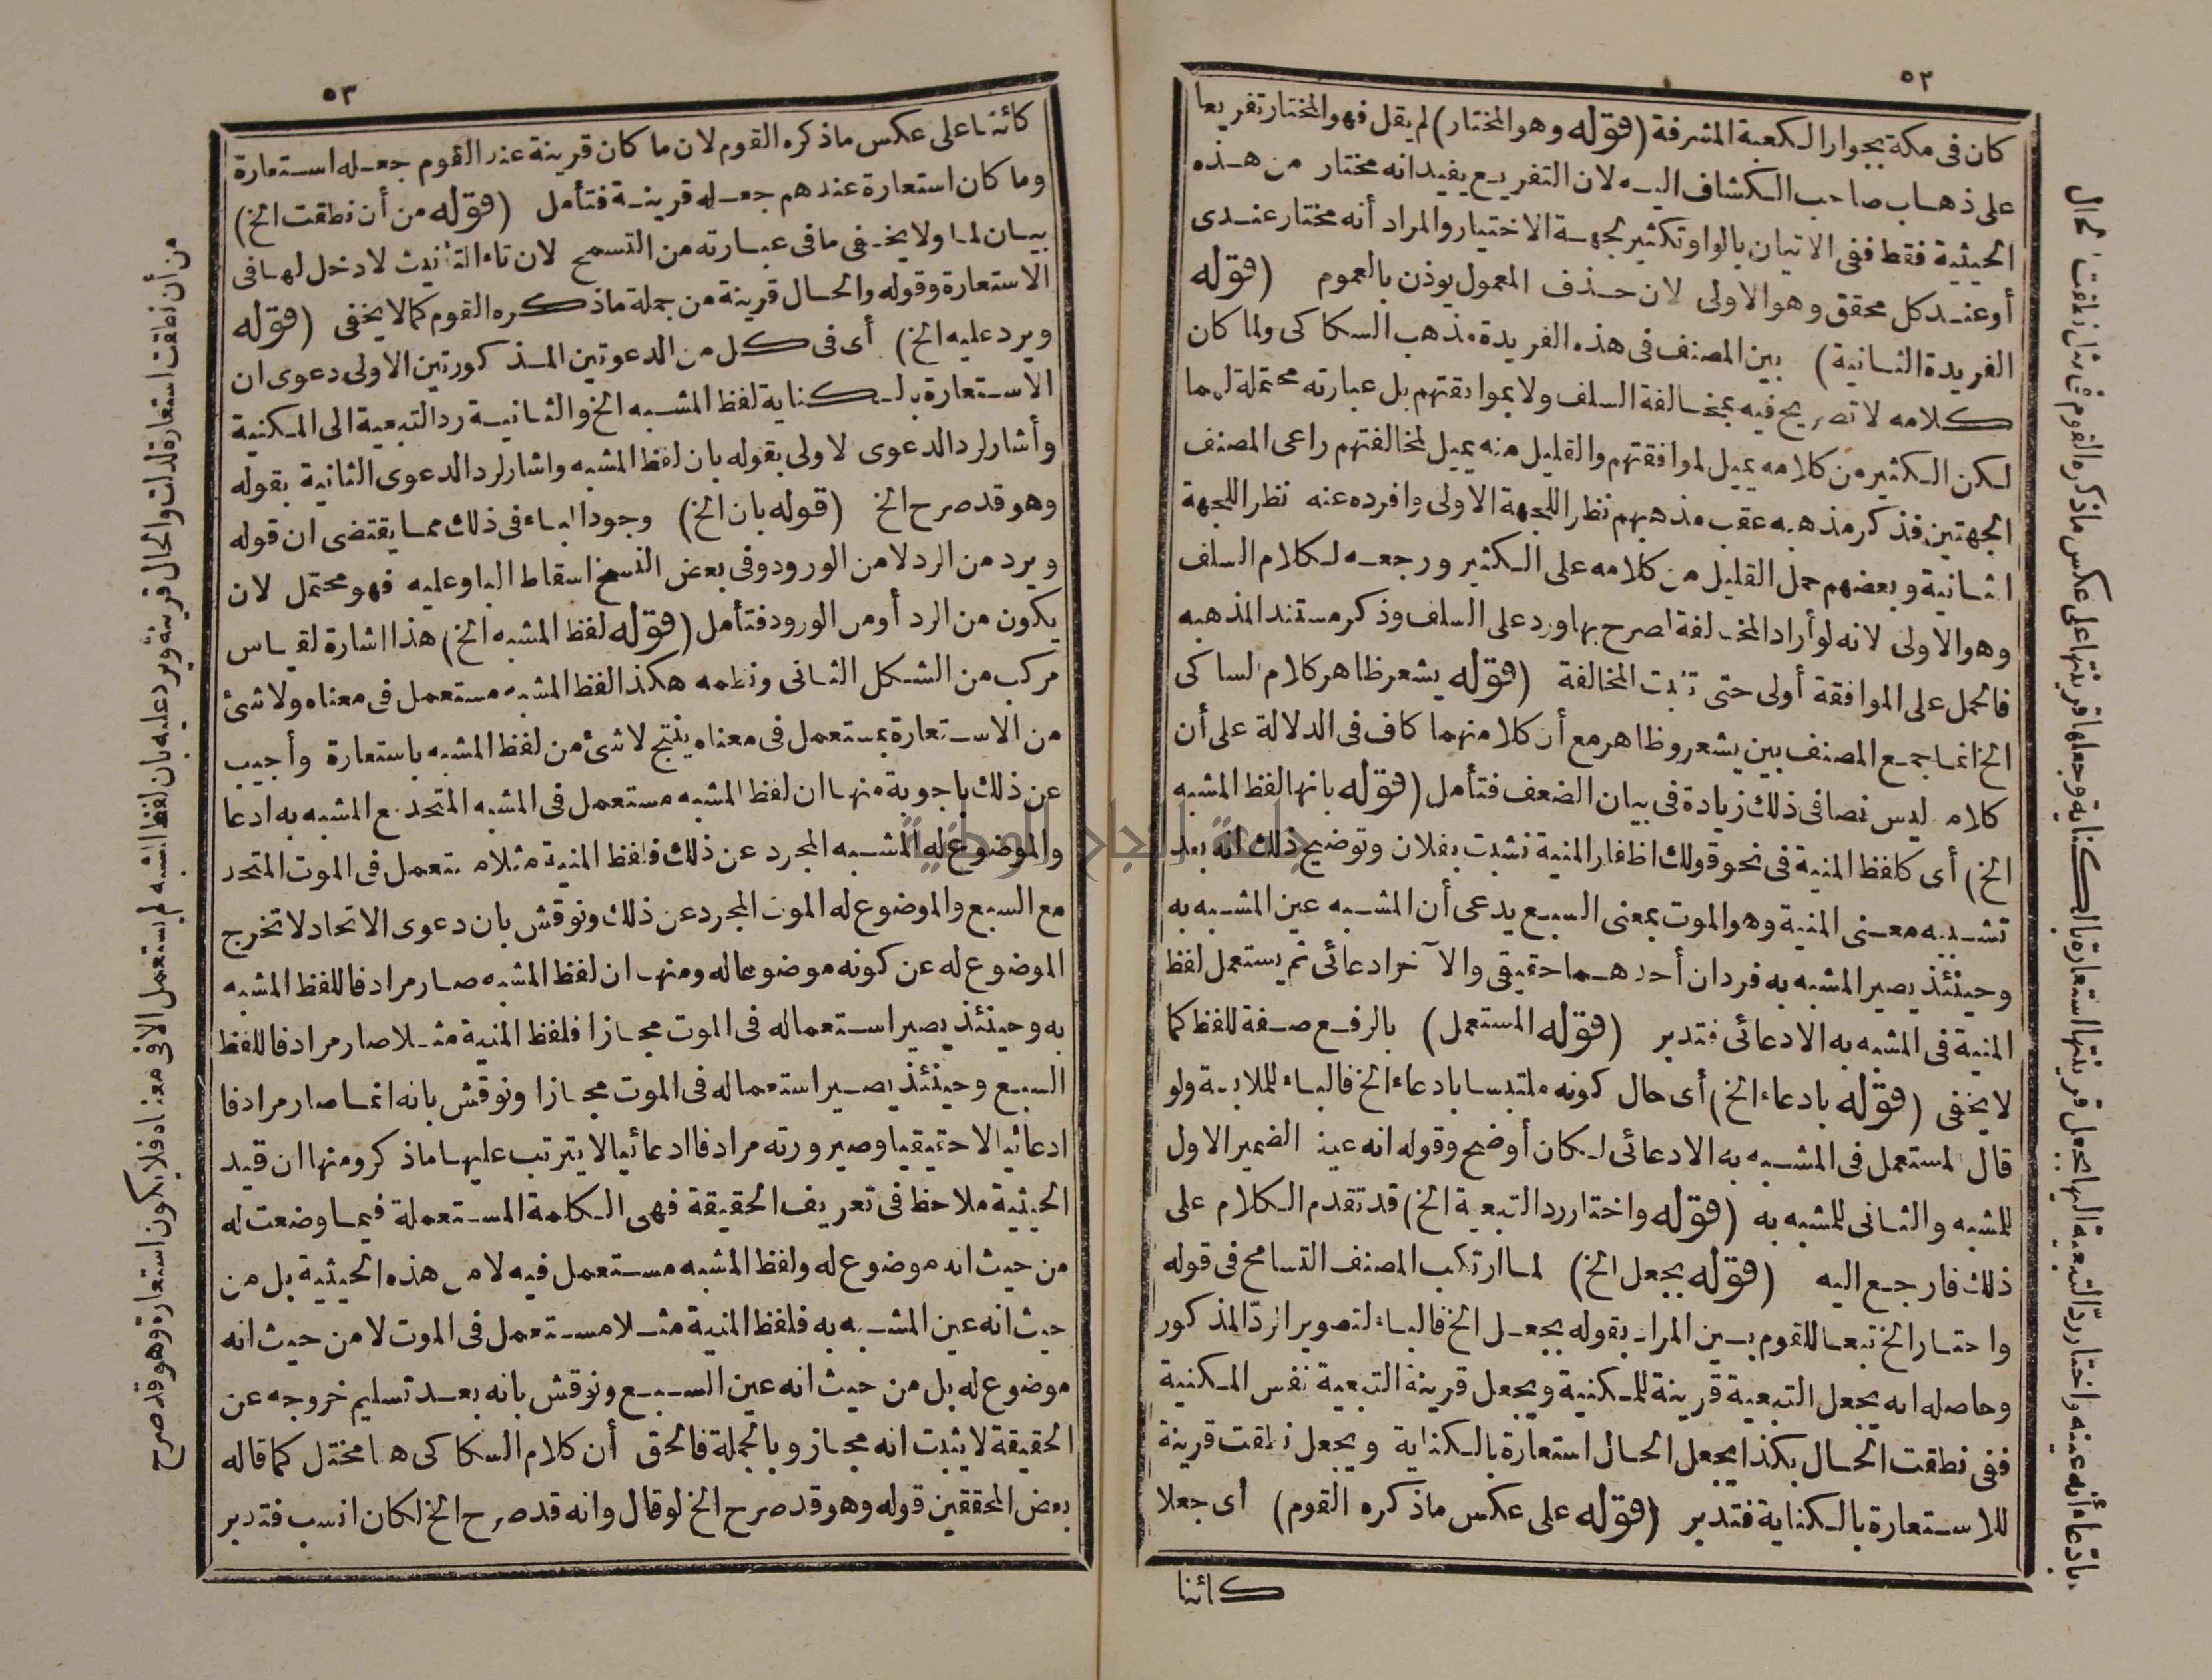 ٥٢
كان فى مكة بجوار الكعبة المشرفة (قوله وهو المختار) لم يقل فهو المختار تفريعا
على ذهاب صاحب الكشاف اليه لان التفريع يفيد انه مختار من هذه
الحيثية فقط ففى الاتيان بالواو تكثير لجهة الاختيار والمراد أنه مختار عندى
أو عند كل محقق وهو الاولى لان حذف المعمول يوذن بالعموم (قوله
الفريدة الثانية) بين المصنف فى هذه الفريدة مذهب السكاكى ولما كان
كلامه لا تصريح فيه بمخالفة السلف ولا بموافقتهم بل عبارته محتملة لهما
لكن الكثير من كلامه يميل لموافقتهم والقليل منه يميل لمخالفتهم راعى المصنف
الجهتين فذكر مذهبه عقب مذهبهم نظرا للجهة الاولى وافرده عنه نظرا للجهة
الثانية وبعضهم حمل القليل من كلامه على الكثير ورجعه لكلام السلف
وهو الاولى لانه لو أراد المخالفة لصرح بها ورد على السلف وذكر مستند المذهبه
فالحمل على الموافقة أولى حتى تثبت المخالفة (قوله يشعر ظاهر كلام السكاكى
الخ) انما جمع المصنف بين يشعر وظاهر مع أن كلا منهما كاف فى الدلالة على أن
كلامه ليس نصا فى ذلك زيادة فى بيان الضعف فتأمل (قوله بانها لفظ المشبه
الخ) أى كلفظ المنية فى نحو قولك اظفار المنية نشبت بفلان وتوضيح ذلك انه بعد
تشبيه معنى المنية وهو الموت بمعنى السبع يدعى أن المشبه عين المشبه به
وحينئذ يصير المشبه به فردان أحدهما حقيقى والآخر ادعائى ثم يستعمل لفظ
المنية فى المشبه به الادعائى فتدبر (قوله المستعمل) بالرفع صفة للفظ كما
لا يخفى (قوله بادعاء الخ) أى حال كونه ملتبسا بادعاء الخ فالباء للملابسة ولو
قال المستعمل فى المشبه به الادعائى لكان أوضح وقوله انه عينه الضمير الاول
للمشبه والثانى للمشبه به (قوله واختار رد التبعية الخ) قد تقدم الكلام على
ذلك فارجع اليه (قوله بجعل الخ) لما ارتكب المصنف التسامح فى قوله
واختار الخ تبعا للقوم بين المراد بقوله بجعل الخ فالباء لتصوير الردّ المذكور
وحاصله انه يجعل التبعية قرينة للمكنية ويجعل قرينة التبعية نفس المكنية
ففى نطقت الحال بكذا يجعل الحال استعارة بالكناية ويجعل نطقت قرينة
للاستعارة بالكناية فتدبر (قوله على عكس ماذكره القوم) أى جعلا
كائنا
بادعاء أنه عينه واختار ردّ التبعية اليها بجعل قرينتها استعارة بالكناية وجعلها قرينتها على عكس ماذكره القوم فى مثل نطقت الحال
٥٣
كائنا على عكس ماذكره القوم لان ما كان قرينة عند القوم جعله استعارة
وما كان استعارة عندهم جعله قرينة فتأمل (قوله من أن نطقت الخ)
بيان لما ولا يخفى ما فى عبارته من التسمح لان تاء التأنيث لا دخل لها فى
الاستعارة وقوله والحال قرينة من جملة ماذكره القوم كما لا يخفى (قوله
ويرد عليه الخ) أى فى كل من الدعوتين المذكورتين الاولى دعوى ان
الاستعارة بالكناية لفظ المشبه الخ والثانية رد التبعية الى المكنية
وأشار لرد الدعوى الاولى بقوله بان لفظ المشبه واشار لرد الدعوى الثانية بقوله
وهو قد صرح الخ (قوله بان الخ) وجود الباء فى ذلك مما يقتضى ان قوله
ويرد من الرد لا من الورود وفى بعض النسخ اسقاط الباء وعليه فهو محتمل لان
يكون من الرد أو من الورود فتأمل (قوله لفظ المشبه الخ) هذا اشارة لقياس
مركب من الشكل الثانى ونظمه هكذا لفظ المشبه مستعمل فى معناه ولا شئ
من الاستعارة بمستعمل فى معناه ينتج لا شئ من لفظ المشبه باستعارة وأجيب
عن ذلك باجوبة منها ان لفظ المشبه مستعمل فى المشبه المتحد مع المشبه به ادعا
والموضوع له المشبه المجرد عن ذلك فلفظ المنية مثلا مستعمل فى الموت المتحد
مع السبع والموضوع له الموت المجرد عن ذلك ونوقش بان دعوى الاتحاد لا تخرج
الموضوع له عن كونه موضوعا له ومنها ان لفظ المشبه صار مرادفا للفظ المشبه
به وحينئذ يصير استعماله فى الموت مجازا فلفظ المنية مثلا صار مرادفا للفظ
السبع وحينئذ يصير استعماله فى الموت مجازا ونوقش بانه انما صار مرادفا
ادعائيا لا حقيقيا وصيرورته مرادفا ادعائيا لا يترتب عليها ماذكر ومنها ان قيد
الحيثية ملاحظ فى تعريف الحقيقة فهى الكلمة المستعملة فيما وضعت له
من حيث انه موضوع له ولفظ المشبه مستعمل فيه لا من هذه الحيثية بل من
حيث انه عين المشبه به فلفظ المنية مثلا مستعمل فى الموت لا من حيث انه
موضوع له بل من حيث انه عين السبع ونوقش بانه بعد تسليم خروجه عن
الحقيقة لا يثبت انه مجاز وبالجملة فالحق أن كلام السكاكى هنا مختل كما قاله
بعض المحققين قوله وهو قد صرح الخ لو قال وانه قد صرح الخ لكان انسب فتدبر
من أن نطقت استعارة لدلت والحال قرينة ويرد عليه بان لفظ المشبه لم يستعمل الا فى معناه فلا يكون استعارة وهو قد صرح